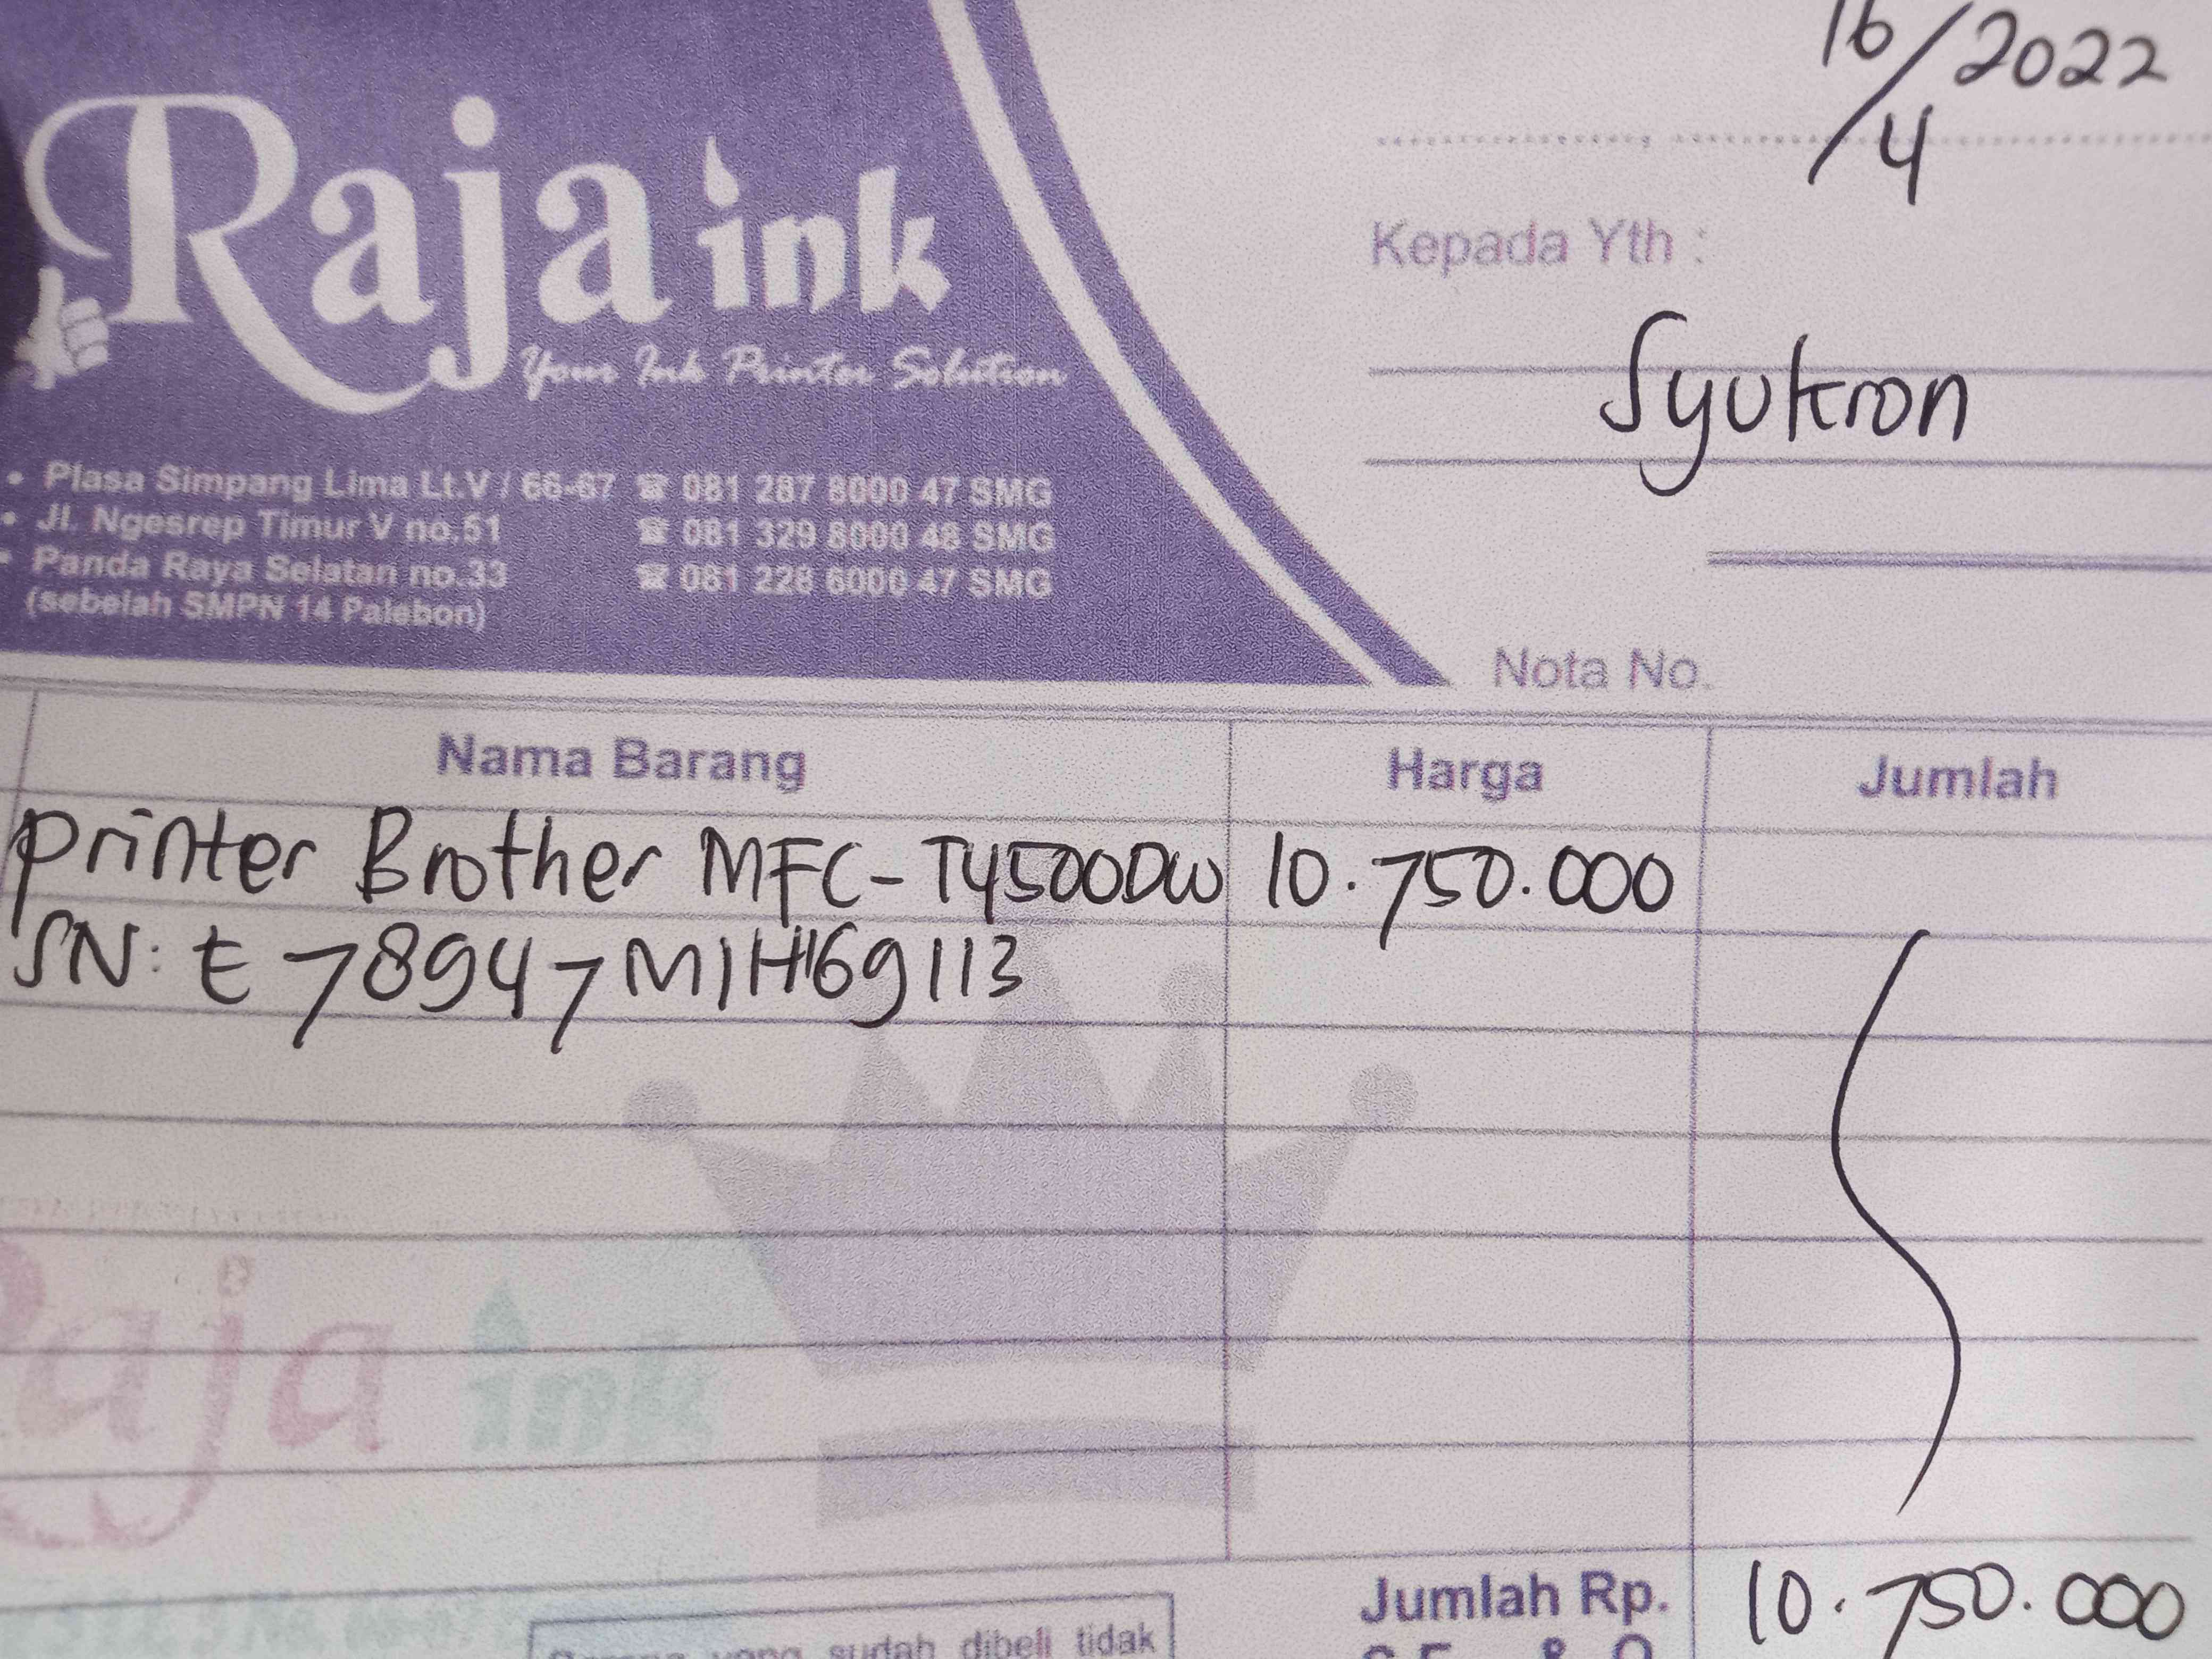 16/4/2022
Raja ink
Your Ink Printer Solution
Kepada Yth :
Syukron
• Plasa Simpang Lima Lt.V / 66-67 ☎ 081 287 8000 47 SMG
• Jl. Ngesrep Timur V no.51 ☎ 081 329 8000 48 SMG
• Panda Raya Selatan no.33 ☎ 081 228 6000 47 SMG
(sebelah SMPN 14 Palebon)
Nota No.
Nama Barang Harga Jumlah
Printer Brother MFC-T4500DW 10.750.000
SN: E78947M1H169113
Raja ink
Jumlah Rp. 10.750.000
yang sudah dibeli tidak